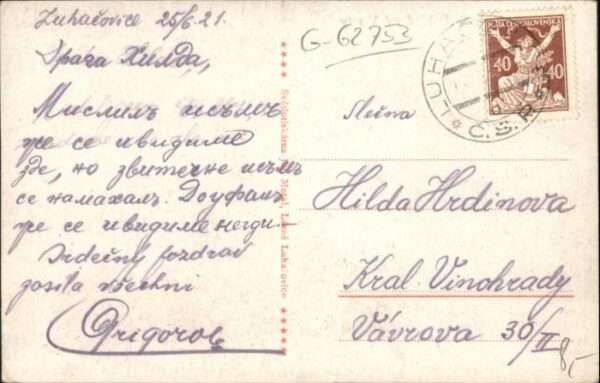 Luhačovice 25/6 21.
Драга Хилда,
Мислилъ исъмъ
же се ивидиме
зде, но звитечне исъмъ
се намахалъ. Доуфамъ
же се ивидиме негди-
Srdečný pozdrav
posila všechni
Grigorov
G-62753
LUHA
Č. S. R.
POŠTA ČESKOSLOVENSKÁ
40 40
Slečna
Hilda Hrdinova
Kral. Vinohrady
Vávrova 30/II
8,-
Luhačovice